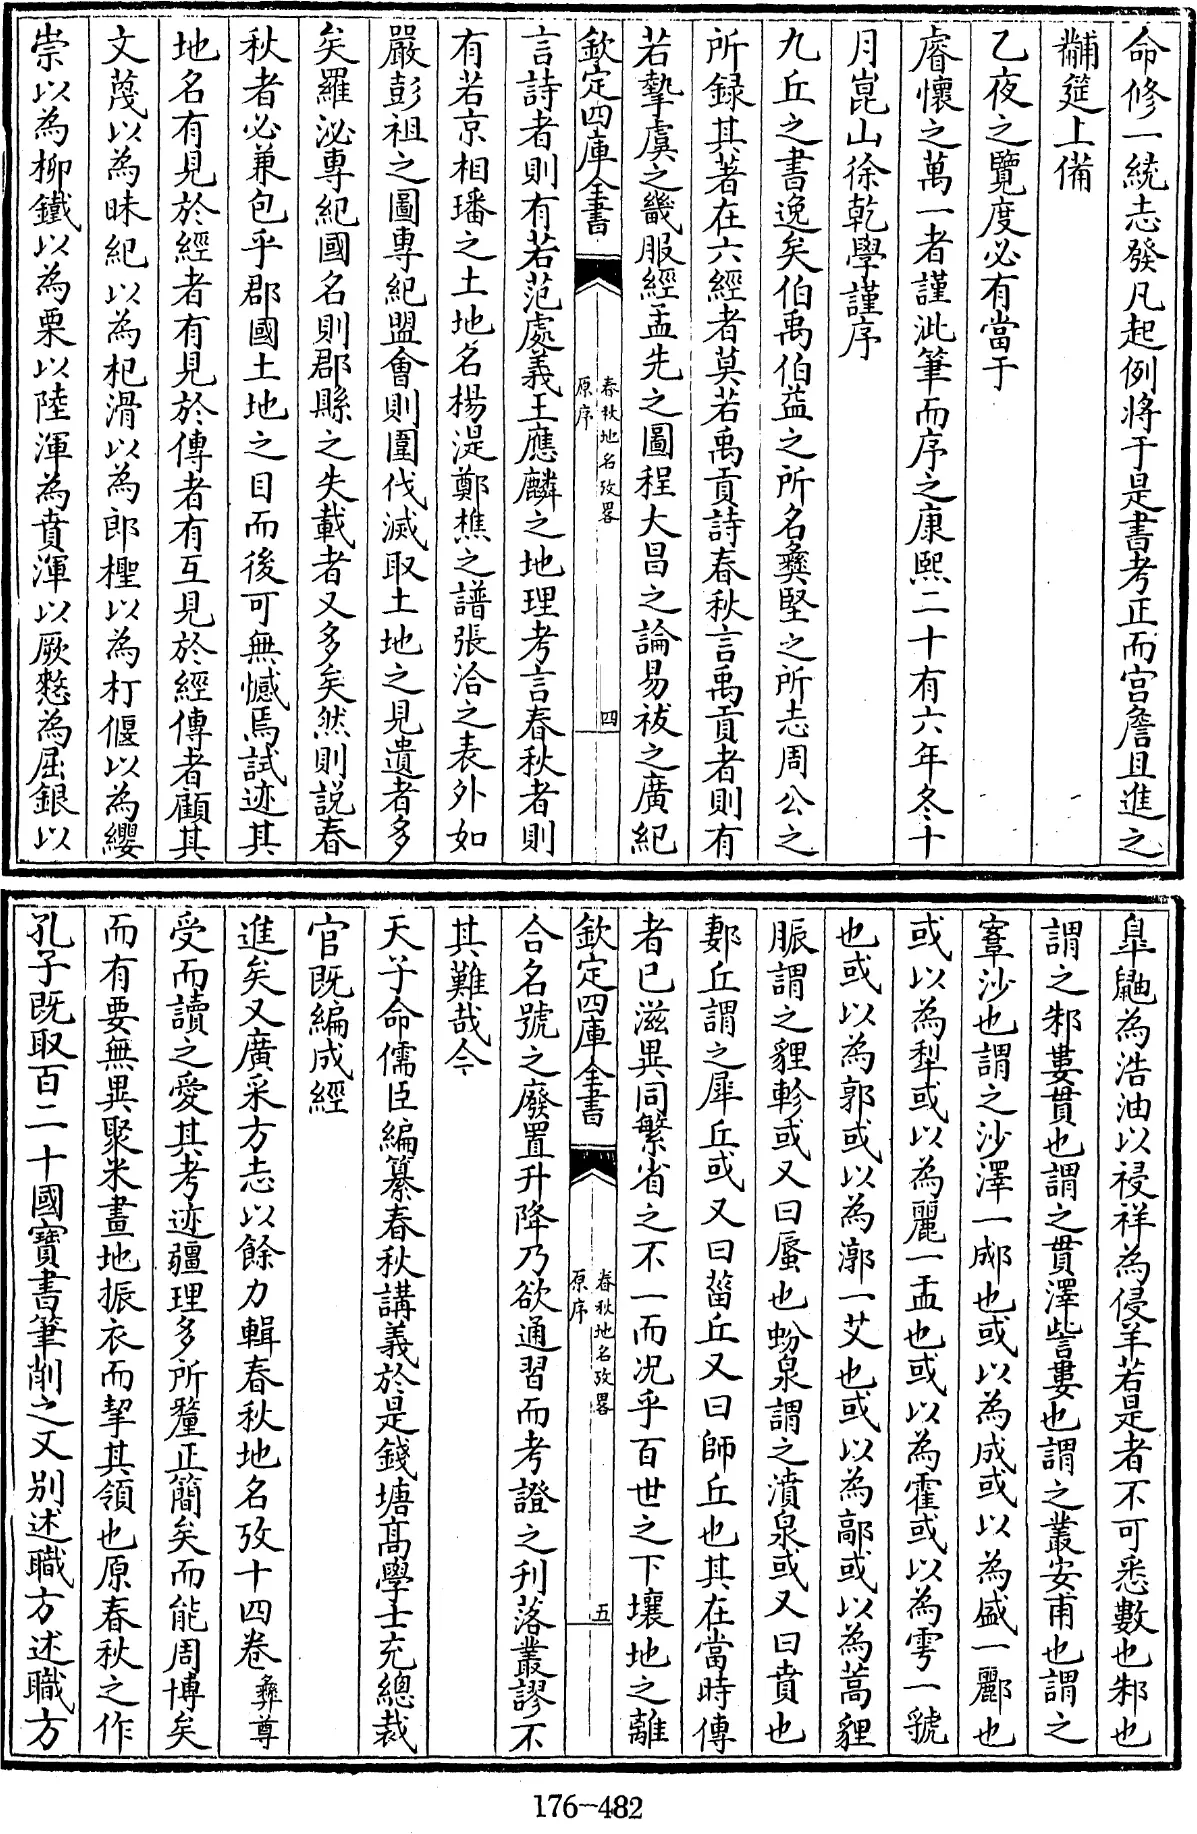 命修一統志發凡起例將于是書考正而宫詹且進之
黼筵上備
乙夜之覽度必有當于
睿懷之萬一者謹泚筆而序之康熙二十有六年冬十
月崑山徐乾學謹序
九丘之書逸矣伯禹伯益之所名彝堅之所志周公之
所録其著在六經者莫若禹貢詩春秋言禹貢者則有
若摯虞之畿服經孟先之圖程大昌之論易祓之廣紀
欽定四庫全書
春秋地名攷畧
原序
四
言詩者則有若范處義王應麟之地理考言春秋者則
有若京相璠之土地名楊湜鄭樵之譜張洽之表外如
嚴彭祖之圖專紀盟會則圍伐滅取土地之見遺者多
矣羅泌專紀國名則郡縣之失載者又多矣然則説春
秋者必兼包乎郡國土地之目而後可無憾焉試迹其
地名有見於經者有見於傳者有互見於經傳者顧其
文蔑以為昧紀以為杞滑以為郎檉以為朾偃以為纓
崇以為柳鐵以為栗以陸渾為賁渾以厥憖為屈銀以
臯鼬為浩油以祲祥為侵羊若是者不可悉數也邾也
謂之邾婁貫也謂之貫澤訾婁也謂之叢安甫也謂之
鞌沙也謂之沙澤一郕也或以為成或以為盛一酈也
或以為犁或以為麗一盂也或以為霍或以為雩一虢
也或以為郭或以為漷一艾也或以為鄗或以為蒿貍
脤謂之貍軫或又曰蜃也蚡泉謂之濆泉或又曰賁也
郪丘謂之犀丘或又曰菑丘又曰師丘也其在當時傳
者已滋異同繁省之不一而况乎百世之下壤地之離
欽定四庫全書
春秋地名攷畧
原序
五
合名號之廢置升降乃欲通習而考證之刋落叢謬不
其難哉今
天子命儒臣編纂春秋講義於是錢塘髙學士充總裁
官既編成經
進矣又廣采方志以餘力輯春秋地名攷十四卷彝尊
受而讀之愛其考迹疆理多所釐正簡矣而能周博矣
而有要無異聚米畫地振衣而挈其領也原春秋之作
孔子既取百二十國寶書筆削之又别述職方述職方
176-482